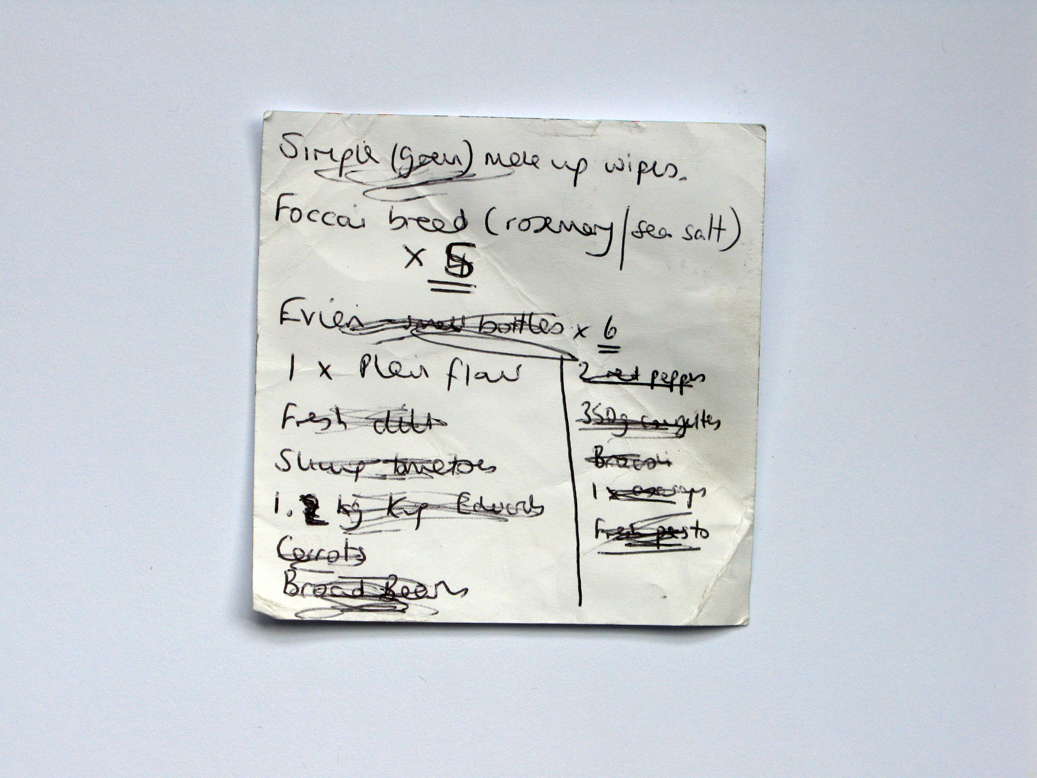 Simple (green) make up wipes.
Foccai bread (rosemary/sea salt)
x 5
Evien small bottles x 6
1 x Plain flour
Fresh dill
Strump tomatoes
1. kg King Edwards
Carrots
Broad Beans
2 red pepper
350g courgettes
Broccoli
1 x
Fresh pesto